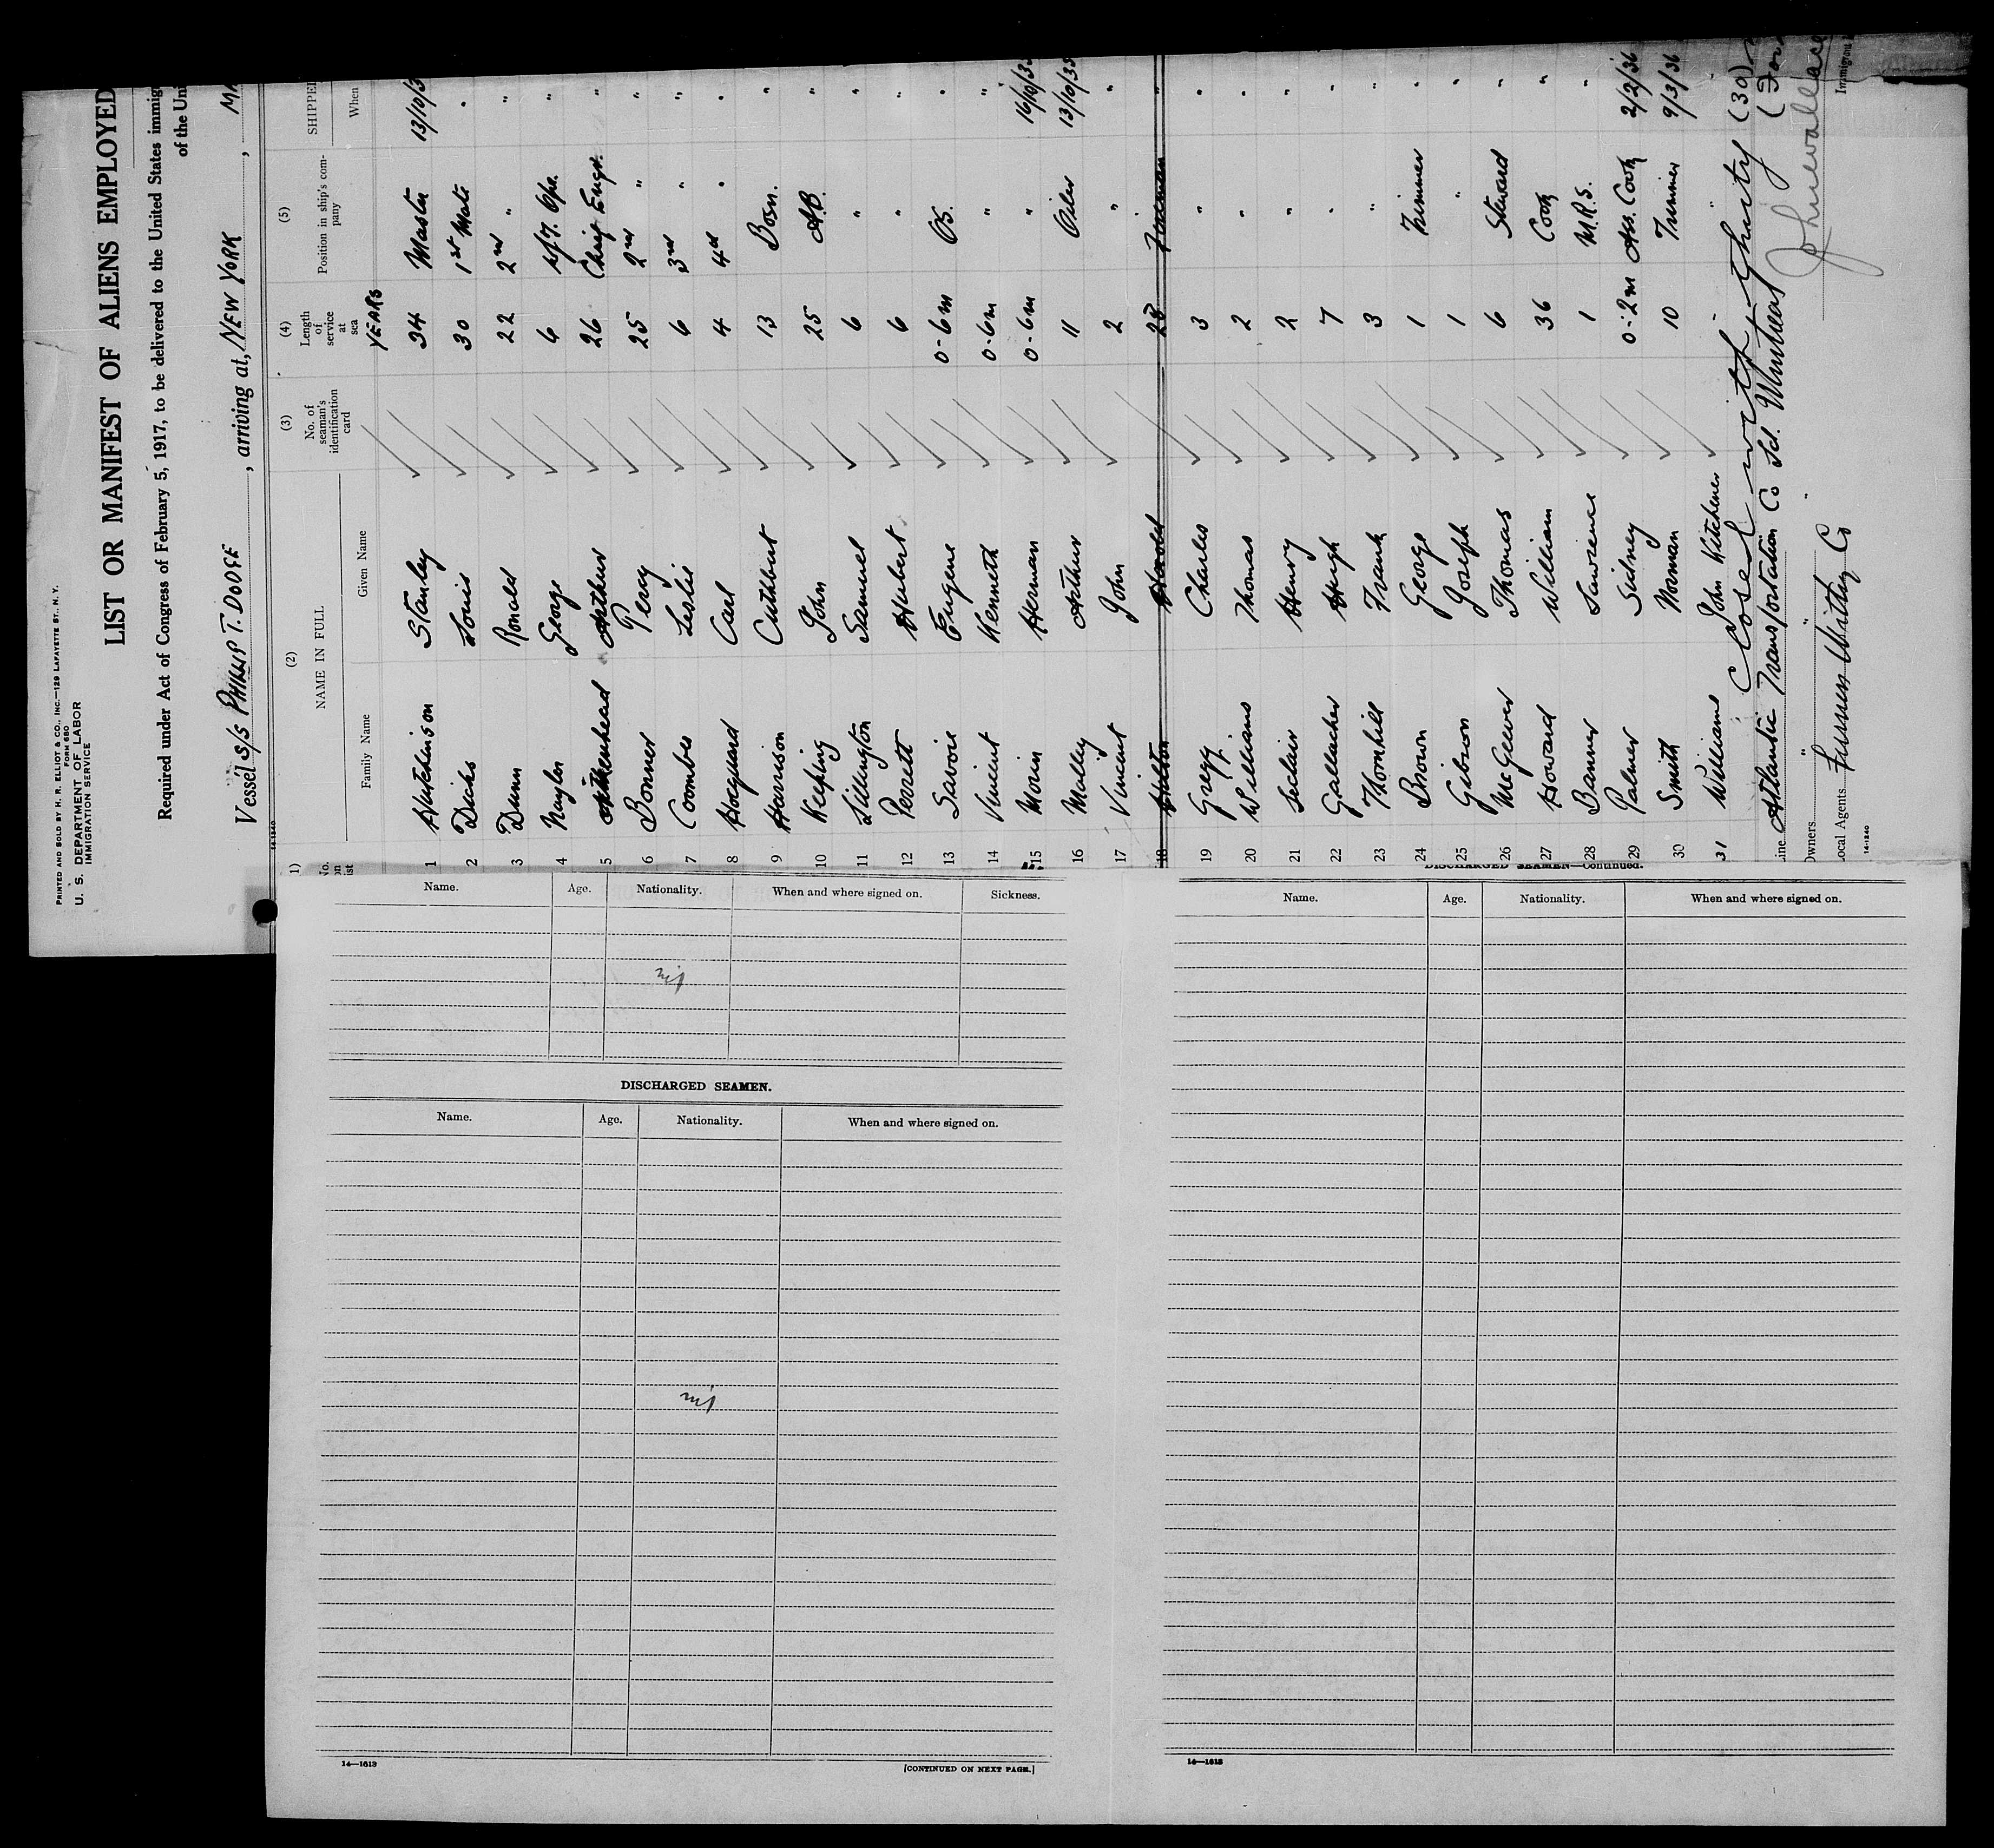 PRINTED AND SOLD BY H. R. ELLIOT & CO., INC.—129 LAFAYETTE ST., N. Y.
FORM 680
U. S. DEPARTMENT OF LABOR
IMMIGRATION SERVICE
LIST OR MANIFEST OF ALIENS EMPLOYED
Required under Act of Congress of February 5, 1917, to be delivered to the United States immig
of the Uni
Vessel S/S PHILIP T. DODGE, arriving at, NEW YORK,
14-1240
(2) (3) (4) (5) SHIPPED
NAME IN FULL
Family Name Given Name No. of seaman's identification card Length of service at sea Position in ship's company When
YEARS
1 Hutchinson Stanley 34 Master 13/10/3
2 Dicks Louis 30 1st Mate "
3 Dunn Ronald 22 2nd " "
4 Naylor George 6 W/T. Opr. "
5 Arthur 26 Chief Engr. "
6 Bonner Percy 25 2nd " "
7 Coombes Leslie 6 3rd " "
8 Hocquard Carl 4 4th " "
9 Harrison Cuthbert 13 Bosn. "
10 Keeping John 25 A.B. "
11 Lillington Samuel 6 " "
12 Perrett Hubert 6 " "
13 Savoie Eugene 0-6m O.S. "
14 Vincent Kenneth 0-6m " "
15 Morin Herman 0-6m " 16/10/3
16 Malley Arthur 11 Oiler 13/10/35
17 Vincent John 2 " "
18 Hutton Harold 28 Fireman "
19 Gregg Charles 3 " "
20 Williams Thomas 2 " "
21 Leclair Henry 2 " "
22 Gallacher Hugh 7 " "
23 Thornhill Frank 3 " "
24 Brown George 1 Trimmer "
25 Gibson Joseph 1 " "
26 McGeever Thomas 6 Steward "
27 Howard William 36 Cook "
28 Banner Lawrence 1 M.R.S. "
29 Palmer Sidney 0-2m Ass. Cook 2/2/36
30 Smith Norman 10 Trimmer 9/3/36
31 Williams John Kitchener
Closed with thirty (30)
Line Atlantic Transportation Co Ld. Montreal
Owners " "
Local Agents Furness Withy Co
John Wallace
Immigrant
14-1240
Name. Age. Nationality. When and where signed on. Sickness.
nil
DISCHARGED SEAMEN.
Name. Age. Nationality. When and where signed on.
nil
14—1613
[CONTINUED ON NEXT PAGE.]
DISCHARGED SEAMEN—Continued.
Name. Age. Nationality. When and where signed on.
14—1613